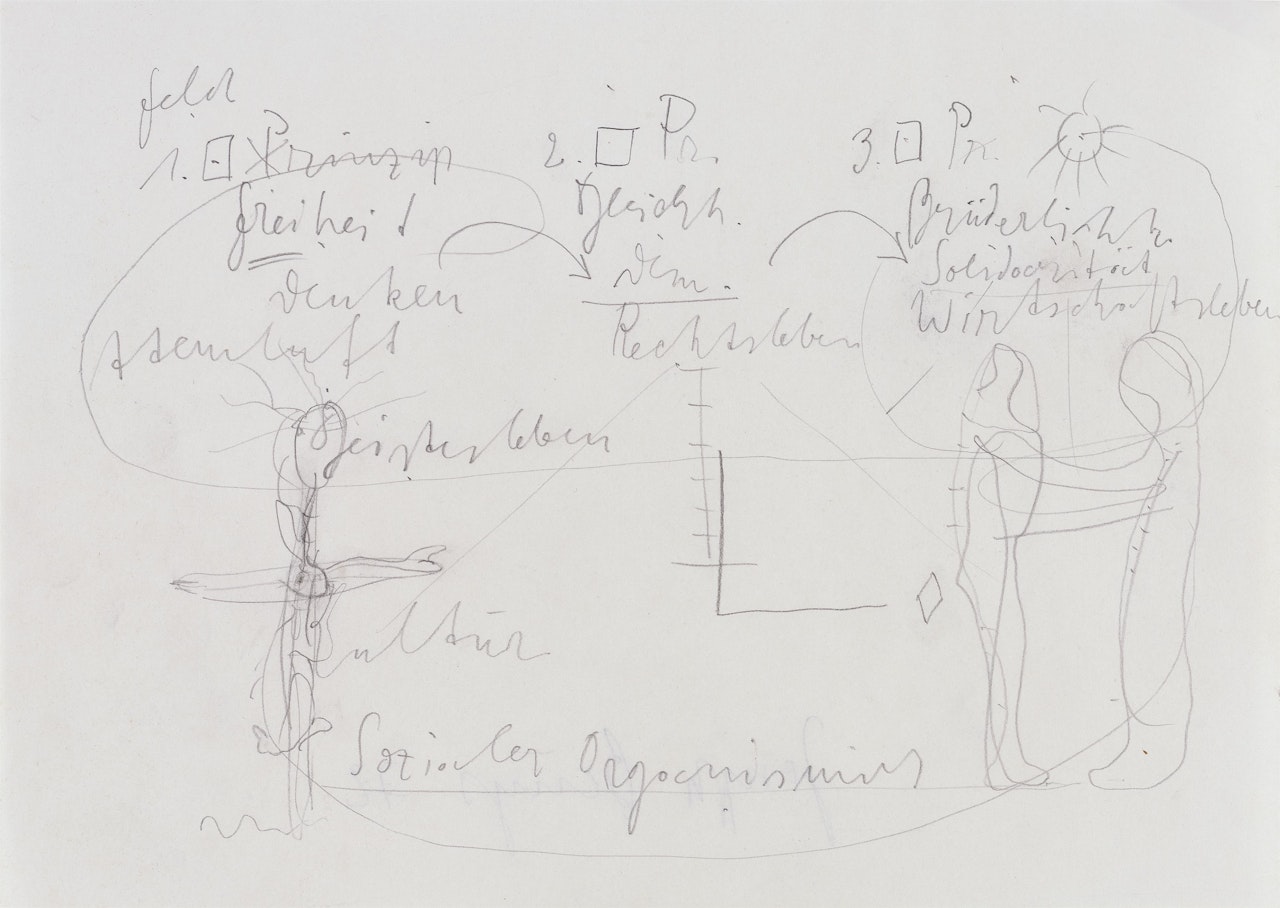 feld
1. Prinzip
freiheit
denken
Atemluft
Geistesleben
Kultur
2. Pr.
Gleichh.
dem.
Rechtsleben
3. Pr.
Brüderlichk.
Solidarität
Wirtschaftsleben
Sozialer Organismus